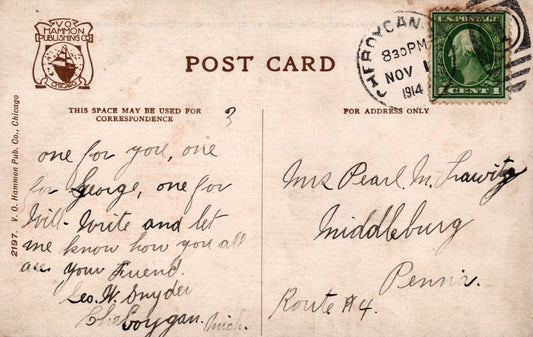 V.O.
HAMMON
PUBLISHING CO.
CHICAGO
POST CARD
CHEBOYGAN,
830 PM
NOV 1
1914
U.S. POSTAGE
1 CENT 1
THIS SPACE MAY BE USED FOR
CORRESPONDENCE
FOR ADDRESS ONLY
3
2197. V. O. Hammon Pub. Co., Chicago
one for you, one
for George, one for
Will- Write and let
me know how you all
are your friend.
Geo. W. Snyder
Cheboygan. Mich.
Mrs Pearl. M.
Middleburg
Penn'a.
Route #4.